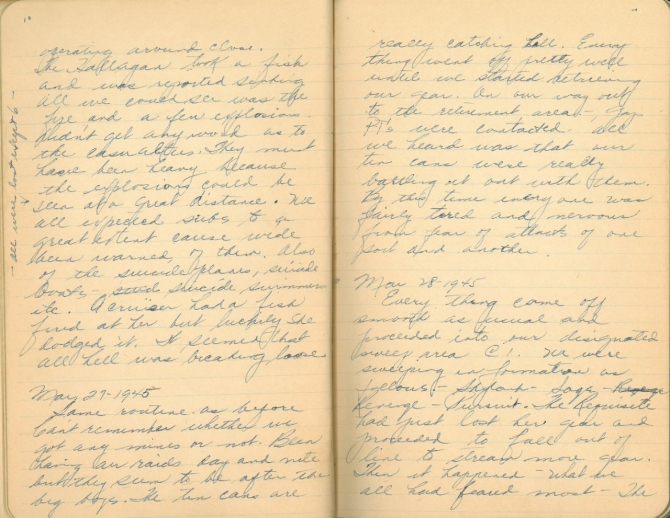 operating around close.
The Hallagan took a fish
and was reported sinking
all we could see was the
fire and a few explosions.
Didnt get any word as to
the casualties. They must
have been heavy because
the explosions could be
seen at a great distance. We
all expected subs to a
great extent cause wede
been warned of them. Also
of the suicide planes, suicide
boats, suicide swimmers
etc. A cruiser had a fish
fired at her but luckily she
dodged it. It seemed that
all hell was breaking loose.
May 27-1945
Same routine as before
Cant remember whether we
got any mines or not. Been
having air raids day and nite
but they seem to be after the
big boys. The tin cans are
- all were lost except 6 -
really catching hell. Every
thing went off pretty well
until we started retrieving
our gear. On our way out
to the retirement area, Jap
PT's were contacted. All
we heard was that our
tin cans were really
battling it out with them.
By this time everyone was
fairly tired and nervous
from fear of attacks of one
sort and another.
Mar 28-1945
Every thing came off
smooth as usual and
proceeded into our designated
sweep area C1. We were
sweeping in formation as
follows - Skylark - Saga -
Revenge - Pursuit. The Requisite
had just lost her gear and
proceeded to fall out of
line to stream more gear.
Then it happened - what we
all had feared most - The